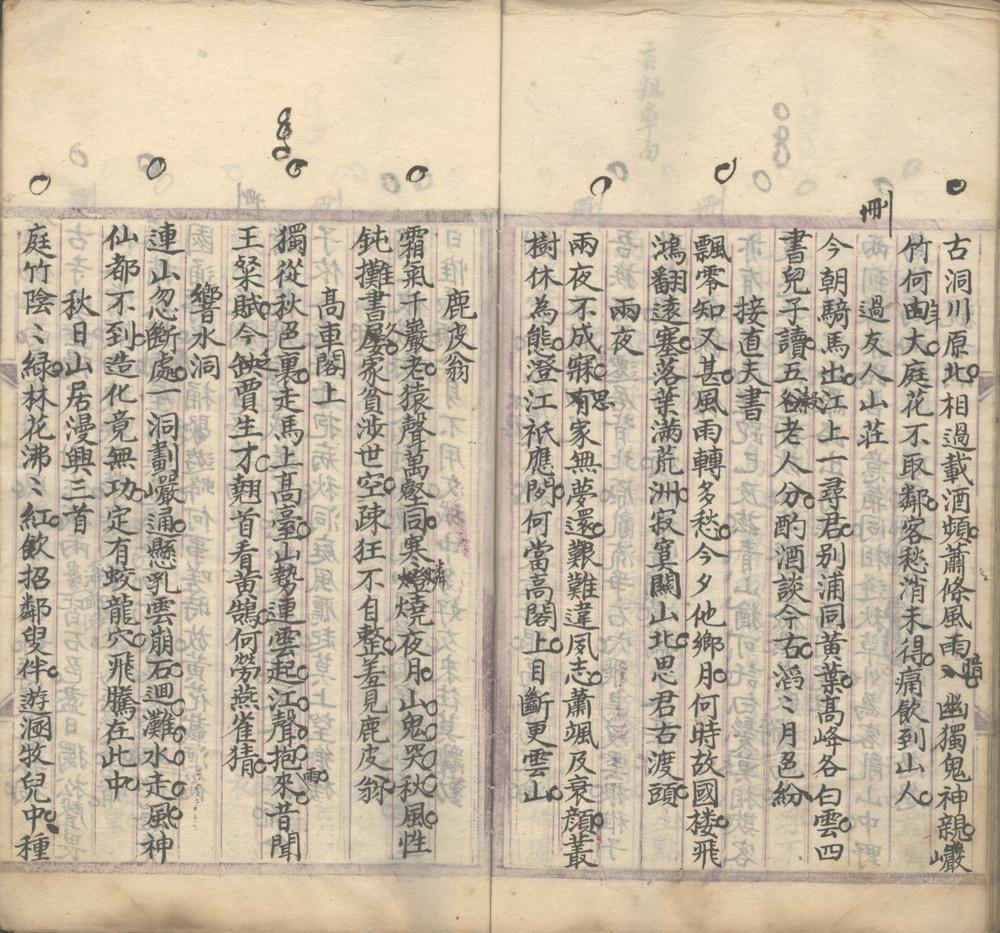 古洞川原北相過載酒頻蕭條風雨暗幽獨鬼神親巖
竹何年大庭花不取鄰客愁消未得痛飲到山人
刪
過友人山莊
今朝騎馬出江上一尋君別浦同黃葉高峰各白雲四
書兒子讀五穀老人分酌酒談今古滔〻月色紛
接直夫書
飄零知又甚風雨轉多愁今夕他鄉月何時故國樓飛
鴻翻遠塞落葉滿荒洲寂寞關山北思君古渡頭
雨夜
兩夜不成寐思家無夢還艱難違夙志蕭颯及衰顏叢
樹休為態澄江祇應閒何當高閣上目斷更雲山
鹿皮翁
霜氣千巖老猿聲萬壑同寒燐燒夜月山鬼哭秋風性
鈍攤書久家貧涉世空疎狂不自整羞見鹿皮翁
高車閣上
獨從秋色裏走馬上高臺山勢連雲起江聲抱雨來昔聞
王粲賦今缺賈生才翹首看黃鵠何勞燕雀猜
響水洞
連山忽斷處一洞劃巖通懸乳雲崩石迴灘水走風神
仙都不到造化竟無功定有蛟龍穴飛騰在此中
秋日山居漫興三首
庭竹陰〻綠林花沸〻紅歡招鄰叟伴遊溷牧兒中種